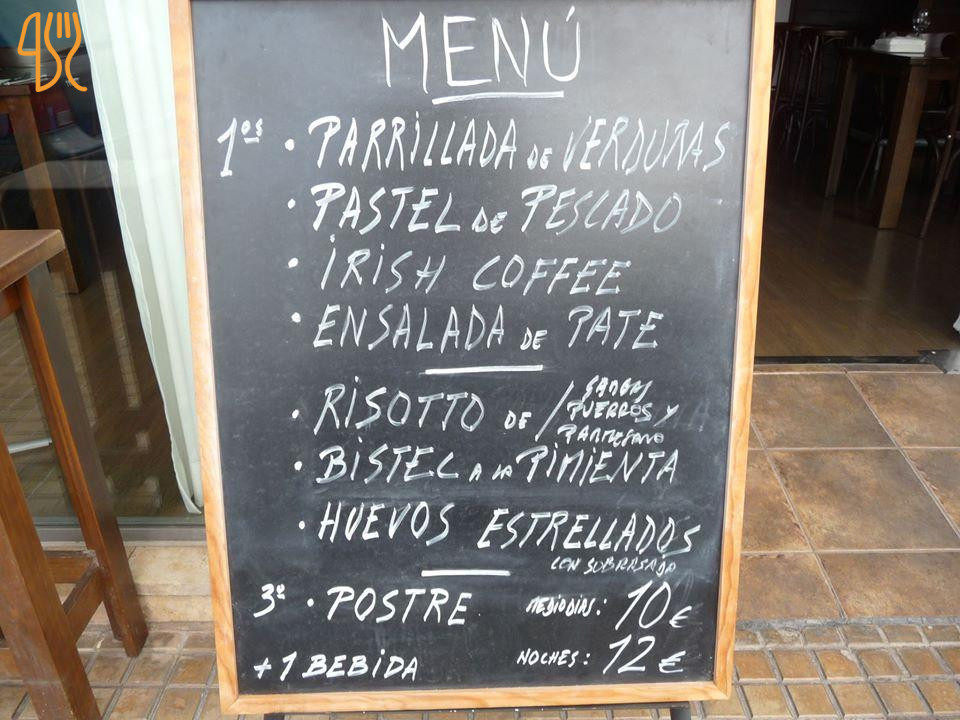 MENÚ
1ºs · PARRILLADA DE VERDURAS
· PASTEL DE PESCADO
· IRISH COFFEE
· ENSALADA DE PATE
· RISOTTO DE / GAMBAS
PUERROS Y
PARMESANO
· BISTEC A LA PIMIENTA
· HUEVOS ESTRELLADOS
CON SOBRASADA
3º · POSTRE MEDIODIAS: 10€
+ 1 BEBIDA NOCHES: 12€